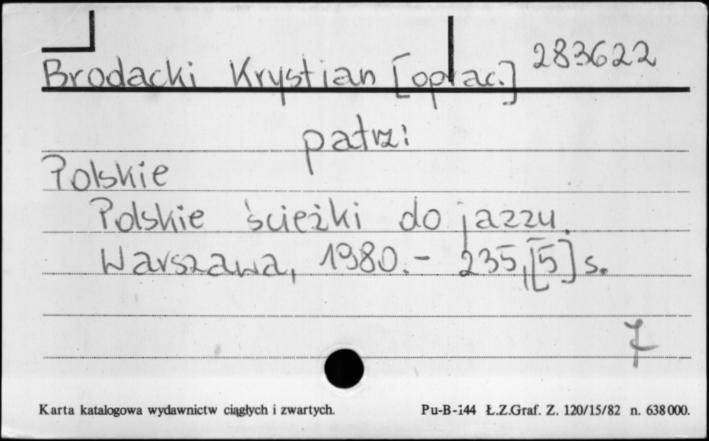 Brodacki Krystian [oprac.] 283622
patrz:
Polskie
Polskie ścieżki do jazzu.
Warszawa, 1980.- 235,[5] s.
7
Karta katalogowa wydawnictw ciągłych i zwartych. Pu-B-144 Ł.Z.Graf. Z. 120/15/82 n. 638000.